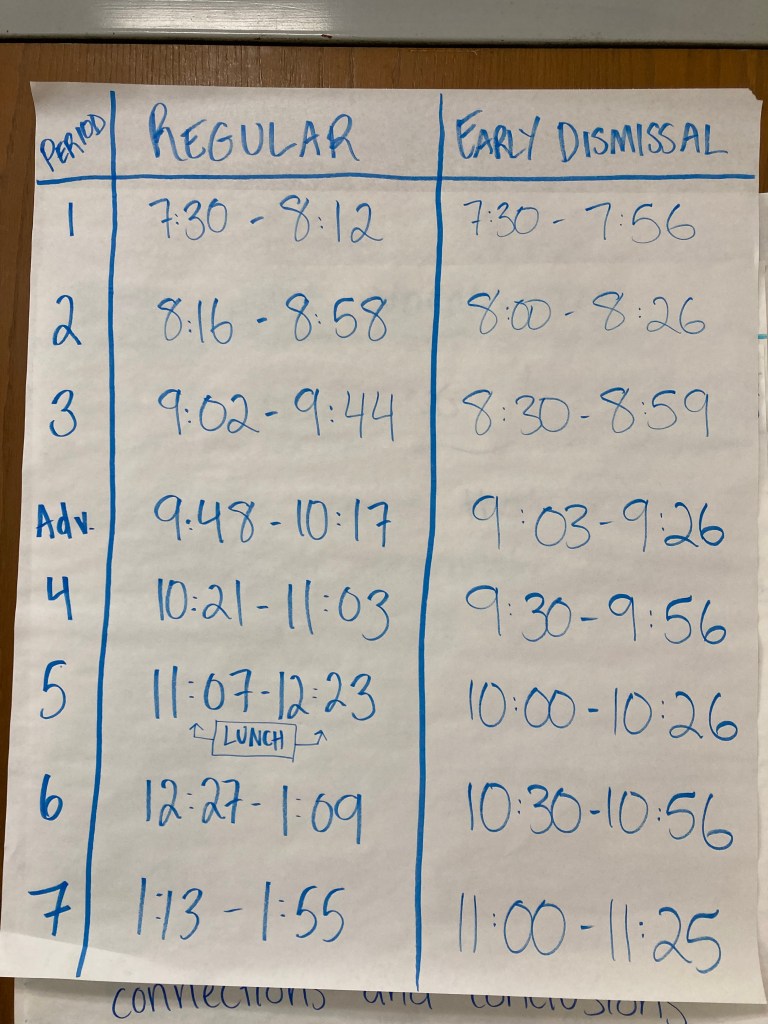 PERIOD REGULAR EARLY DISMISSAL
1 7:30 - 8:12 7:30 - 7:56
2 8:16 - 8:58 8:00 - 8:26
3 9:02 - 9:44 8:30 - 8:59
Adv. 9:48 - 10:17 9:03 - 9:26
4 10:21 - 11:03 9:30 - 9:56
5 11:07 - 12:23 10:00 - 10:26
LUNCH
6 12:27 - 1:09 10:30 - 10:56
7 1:13 - 1:55 11:00 - 11:25
connections and conclusions